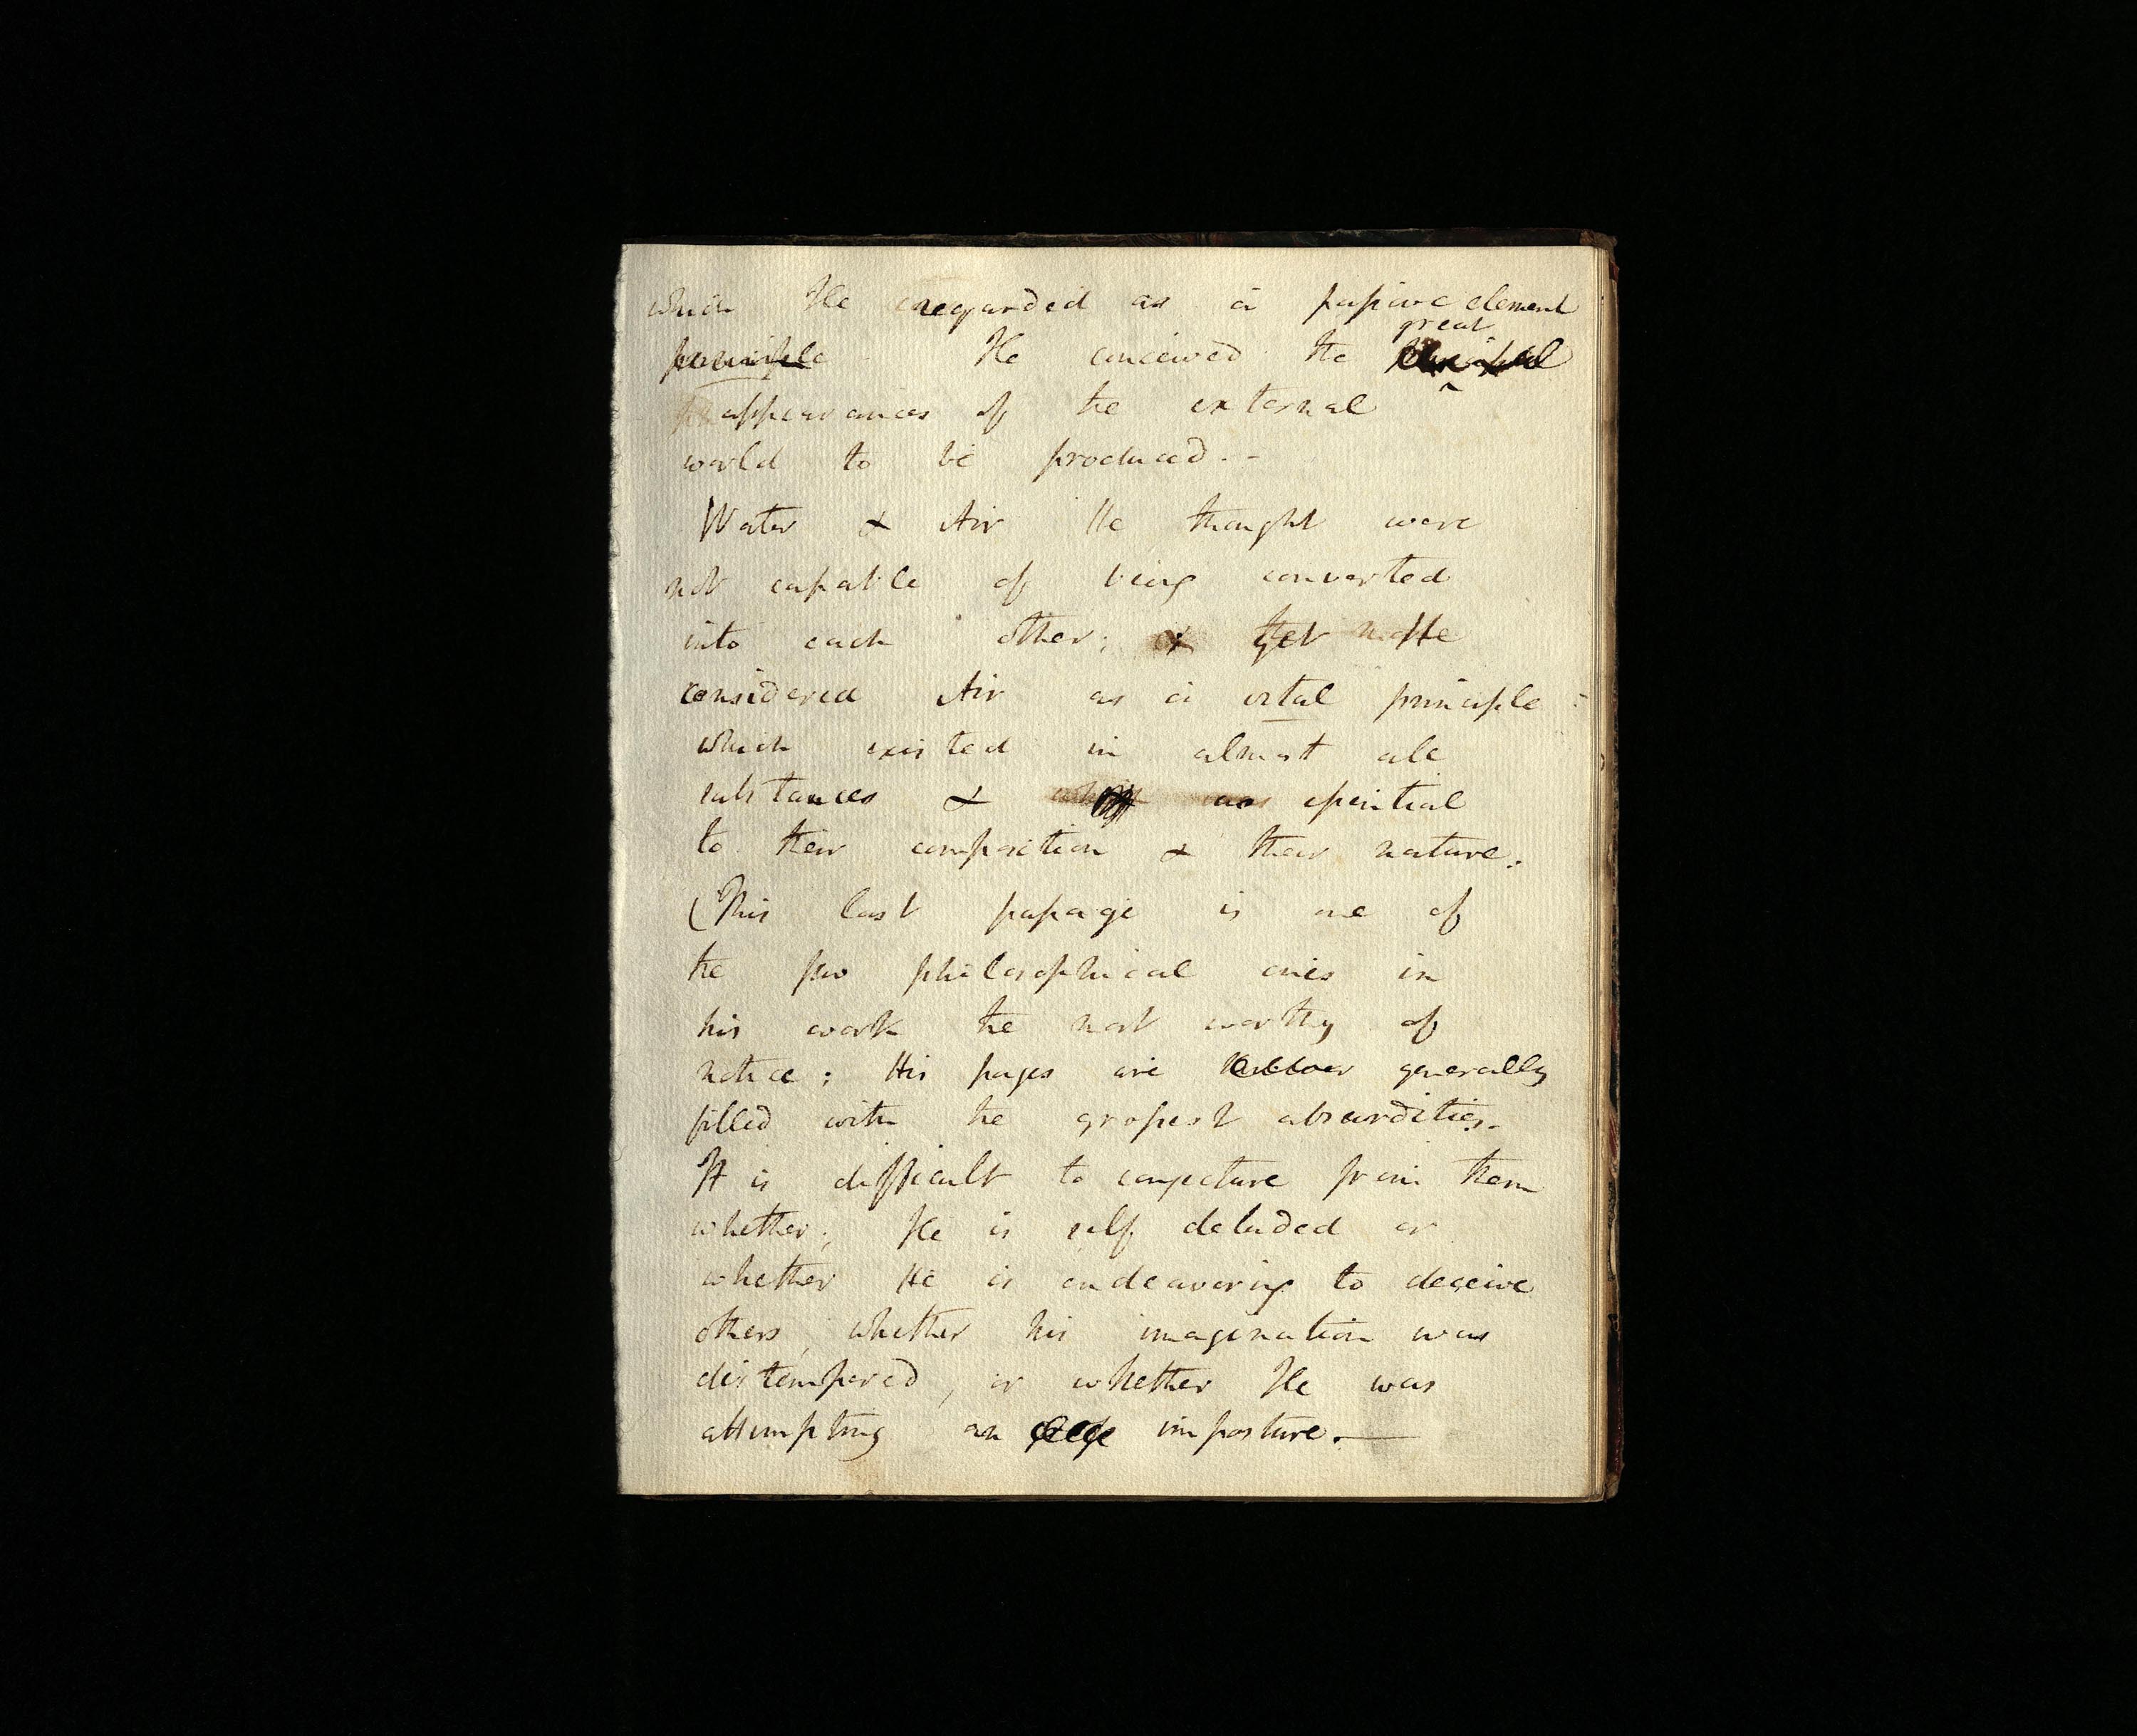 which He regarded as a passive element
principle He conceived the great
appearances of the external
world to be produced. -
Water & Air He thought were
not capable of being converted
into each other; & yet He
considered Air as a vital principle :
which existed in almost all
substances & as essential
to their composition & their nature:
(This last passage is one of
the few philosophical ones in
his work the most worthy of
notice; His pages are generally
filled with the grossest absurdities.-
It is difficult to conjecture from them
whether; He is self deluded or
whether He is endeavoring to deceive
others, whether his imagination was
distempered, or whether He was
attempting an imposture.—